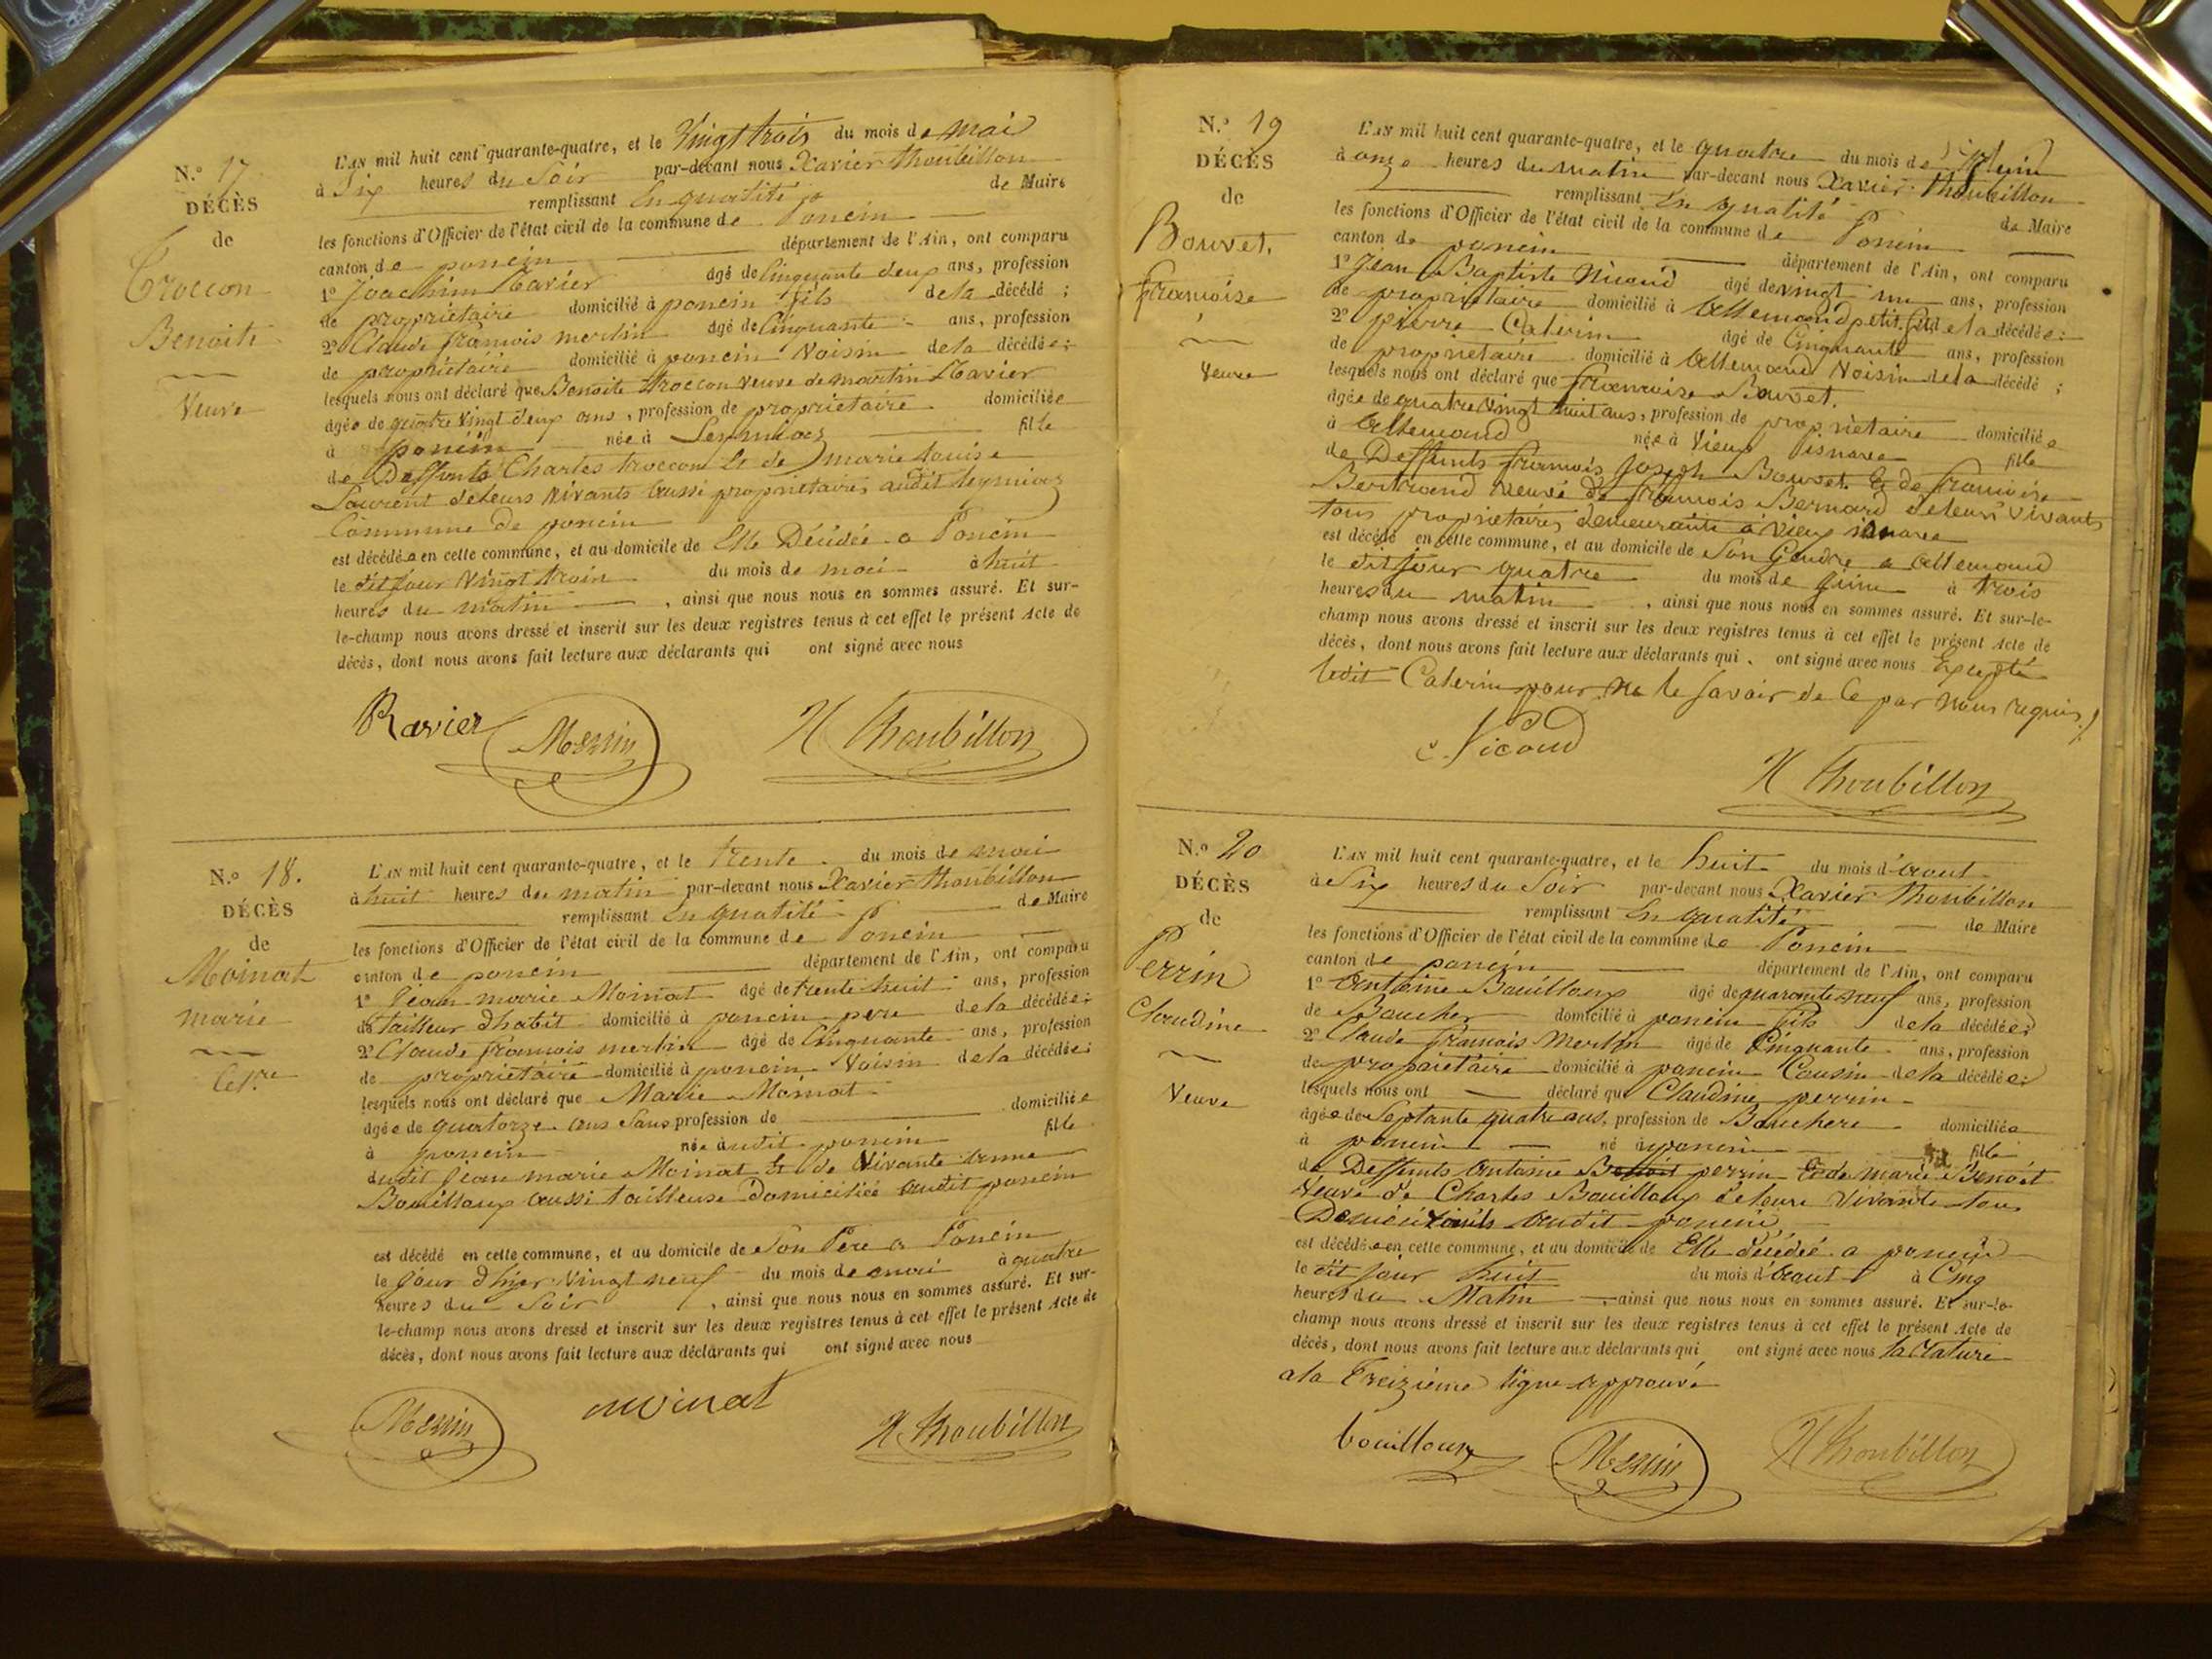 N.° 17
DÉCÈS
de
Troccon
Benoite
Veuve
L'AN mil huit cent quarante-quatre, et le Vingt trois du mois de mai
à Six heures du Soir par-devant nous Xavier Thoubillon
remplissant En qualité de Maire
les fonctions d'Officier de l'état civil de la commune de Poncin
canton de poncin département de l'Ain, ont comparu
1° Joachim Ravier âgé de Cinquante deux ans, profession
de propriétaire domicilié à poncin fils de la décédé ;
2° Claude françois merlin âgé de Cinquante ans, profession
de propriétaire domicilié à poncin Voisin de la décédée ;
lesquels nous ont déclaré que Benoite troccon veuve de martin Ravier
âgée de quatre Vingt deux ans, profession de propriétaire domiciliée
à poncin née à Leymiaz fille
de Deffunts Charles troccon Et de marie Louise
Laurent de leurs vivants aussi propriétaires audit leymiaz
Commune de poncin
est décédée en cette commune, et au domicile de Elle Décédée a Poncin
le dit jour Vingt trois du mois de mai à huit
heures du matin, ainsi que nous nous en sommes assuré. Et sur-
le-champ nous avons dressé et inscrit sur les deux registres tenus à cet effet le présent Acte de
décès, dont nous avons fait lecture aux déclarants qui ont signé avec nous
Ravier Merlin X Thoubillon
N.° 18.
DÉCÈS
de
Moinat
marie
Cel.re
L'AN mil huit cent quarante-quatre, et le trente du mois de mai
à huit heures du matin par-devant nous Xavier Thoubillon
remplissant En qualité de Maire
les fonctions d'Officier de l'état civil de la commune de Poncin
canton de poncin département de l'Ain, ont comparu
1° Jean marie Moinat âgé de trente huit ans, profession
de tailleur d'habit domicilié à poncin pere de la décédée ;
2° Claude françois merlin âgé de Cinquante ans, profession
de propriétaire domicilié à poncin Voisin de la décédée ;
lesquels nous ont déclaré que Marie Moinat
âgée de quatorze ans Sans profession de domiciliée
à poncin née audit poncin fille
dudit Jean marie Moinat Et de Vivante anne
Bouilloux aussi tailleuse Domiciliée audit poncin
est décédé en cette commune, et au domicile de Son Père a Poncin
le jour d'hier Vingt neuf du mois de mai à quatre
heures du Soir, ainsi que nous nous en sommes assuré. Et sur-
le-champ nous avons dressé et inscrit sur les deux registres tenus à cet effet le présent Acte de
décès, dont nous avons fait lecture aux déclarants qui ont signé avec nous
Merlin moinat X Thoubillon
N.° 19
DÉCÈS
de
Bouvet,
françoise
Veuve
L'AN mil huit cent quarante-quatre, et le quatre du mois de Juin
à onze heures du matin par-devant nous Xavier Thoubillon
remplissant En qualité de Maire
les fonctions d'Officier de l'état civil de la commune de Poncin
canton de poncin département de l'Ain, ont comparu
1° Jean Baptiste Nicoud âgé de vingt un ans, profession
de propriétaire domicilié à Allemand petit fils de la décédée ;
2° pierre Caterin âgé de Cinquante ans, profession
de propriétaire domicilié à Allemand Voisin de la décédé ;
lesquels nous ont déclaré que françoise Bouvet.
âgée de quatre Vingt huit ans, profession de propriétaire domiciliée
à Allemand née à Vieux Disnave fille
de Deffunts françois Joseph Bouvet Et de françoise
Bertrand veuve de françois Bernard de leurs vivants
tous propriétaires demeurants a Vieux
est décédé en cette commune, et au domicile de Son Gendre a Allemand
le dit jour quatre du mois de juin à trois
heures du matin, ainsi que nous nous en sommes assuré. Et sur-le-
champ nous avons dressé et inscrit sur les deux registres tenus à cet effet le présent Acte de
décès, dont nous avons fait lecture aux déclarants qui ont signé avec nous Excepté
ledit Caterin pour ne le savoir de ce par nous requis
Nicoud
X Thoubillon
N.° 20
DÉCÈS
de
Perrin
Claudine
Veuve
L'AN mil huit cent quarante-quatre, et le huit du mois d'aout
à Six heures du Soir par-devant nous Xavier Thoubillon
remplissant En qualité de Maire
les fonctions d'Officier de l'état civil de la commune de Poncin
canton de poncin département de l'Ain, ont comparu
1° Antoine Bouilloux âgé de quarante neuf ans, profession
de Boucher domicilié à poncin fils de la décédée ;
2° Claude françois Merlin âgé de Cinquante ans, profession
de propriétaire domicilié à poncin Cousin de la décédée ;
lesquels nous ont déclaré que Claudine perrin
âgée de Septante quatre ans, profession de Bouchere domiciliée
à poncin né à poncin fille
de Deffunts Antoine Benoit perrin Et de marie Benoit
Veuve de Charles Bouilloux de leurs Vivants tous
Domiciliés audit poncin,
est décédée en cette commune, et au domicile de Elle décédée a poncin
le dit jour huit du mois d'aout à Cinq
heures du Matin, ainsi que nous nous en sommes assuré. Et sur-le-
champ nous avons dressé et inscrit sur les deux registres tenus à cet effet le présent Acte de
décès, dont nous avons fait lecture aux déclarants qui ont signé avec nous la rature
a la treizieme ligne approuvé
bouilloux Merlin X Thoubillon